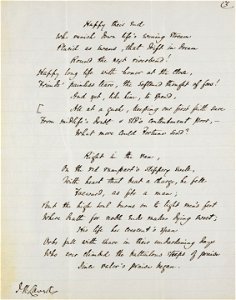 Happy their end
Who vanish down life's evening stream
Placid as swans, that drift in dream
Round the next riverbend!
Happy long life with honor at the close,
Friends' painless tears, the softened thought of foes!
And yet, like him, to spend
All at a gush, keeping our first faith sure
From midlife's doubt & eld's contentment poor, –
What more could Fortune send?
Right in the van,
On the red rampart's slippery swell,
With heart that beat a charge, he fell
Foeward, as fits a man;
But the high soul burns on to light men's feet
Where death for noble ends makes dying sweet;
His life her crescent's span
Orbs full with share in their undarkening days
Who ever climbed the battailous steeps of praise
Since valor's praise began.
J. R. Lowell.